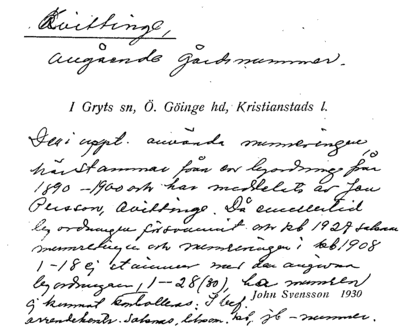 Qvittinge,
angående gårdsnummer.
I Gryts sn, Ö. Göinge hd, Kristianstads l.
Den i uppt. använda numreringen
härstammar från en byordning från
1890–1900 och har meddelats av Jon
Persson, Qvittinge. Då emellertid
byordningen försvunnit och kb 1929 saknar
numrering och numreringen i kb 1908
1–18 ej stämmer med den angivna
byordningen, 1–28 (30), ha numren
ej kunnat kontrolleras. I bef.
John Svensson 1930
arrendekontr. saknas, liksom i kb, jb-nummer.